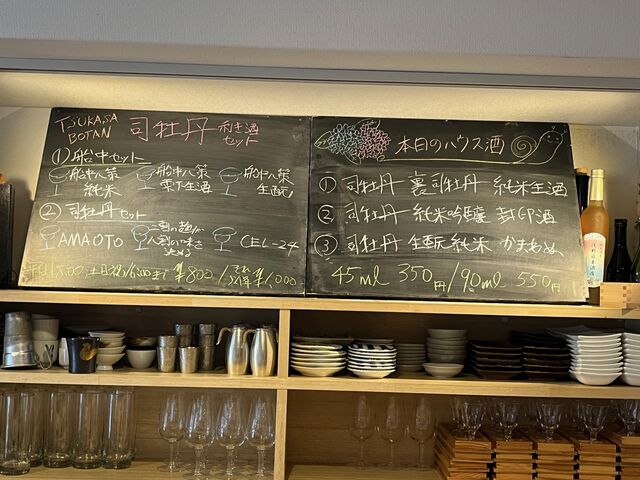 TSUKASA
BOTAN
司牡丹 利き酒
セット
① 船中セット
船中八策
純米
船中八策
零下生酒
船中八策
生酛
② 司牡丹セット
AMAOTO
一割の麹が
八割の味を
決める
CEL-24
まで ¥800 / それ以降 ¥1,000
本日のハウス酒
① 司牡丹 裏司牡丹 純米生酒
② 司牡丹 純米吟醸 封印酒
③ 司牡丹 生酛純米 かまわぬ
45ml 350円/90ml 550円